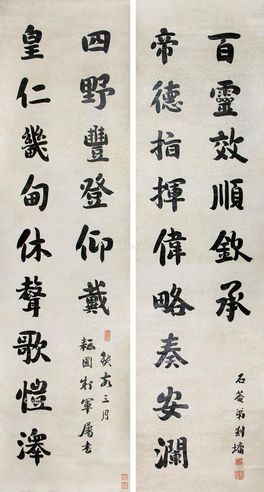 百靈效順欽承
帝德指揮偉略奏安瀾
石菴弟劉墉
四野豐登仰戴
皇仁畿甸休聲歌愷澤
三月
軍屬書